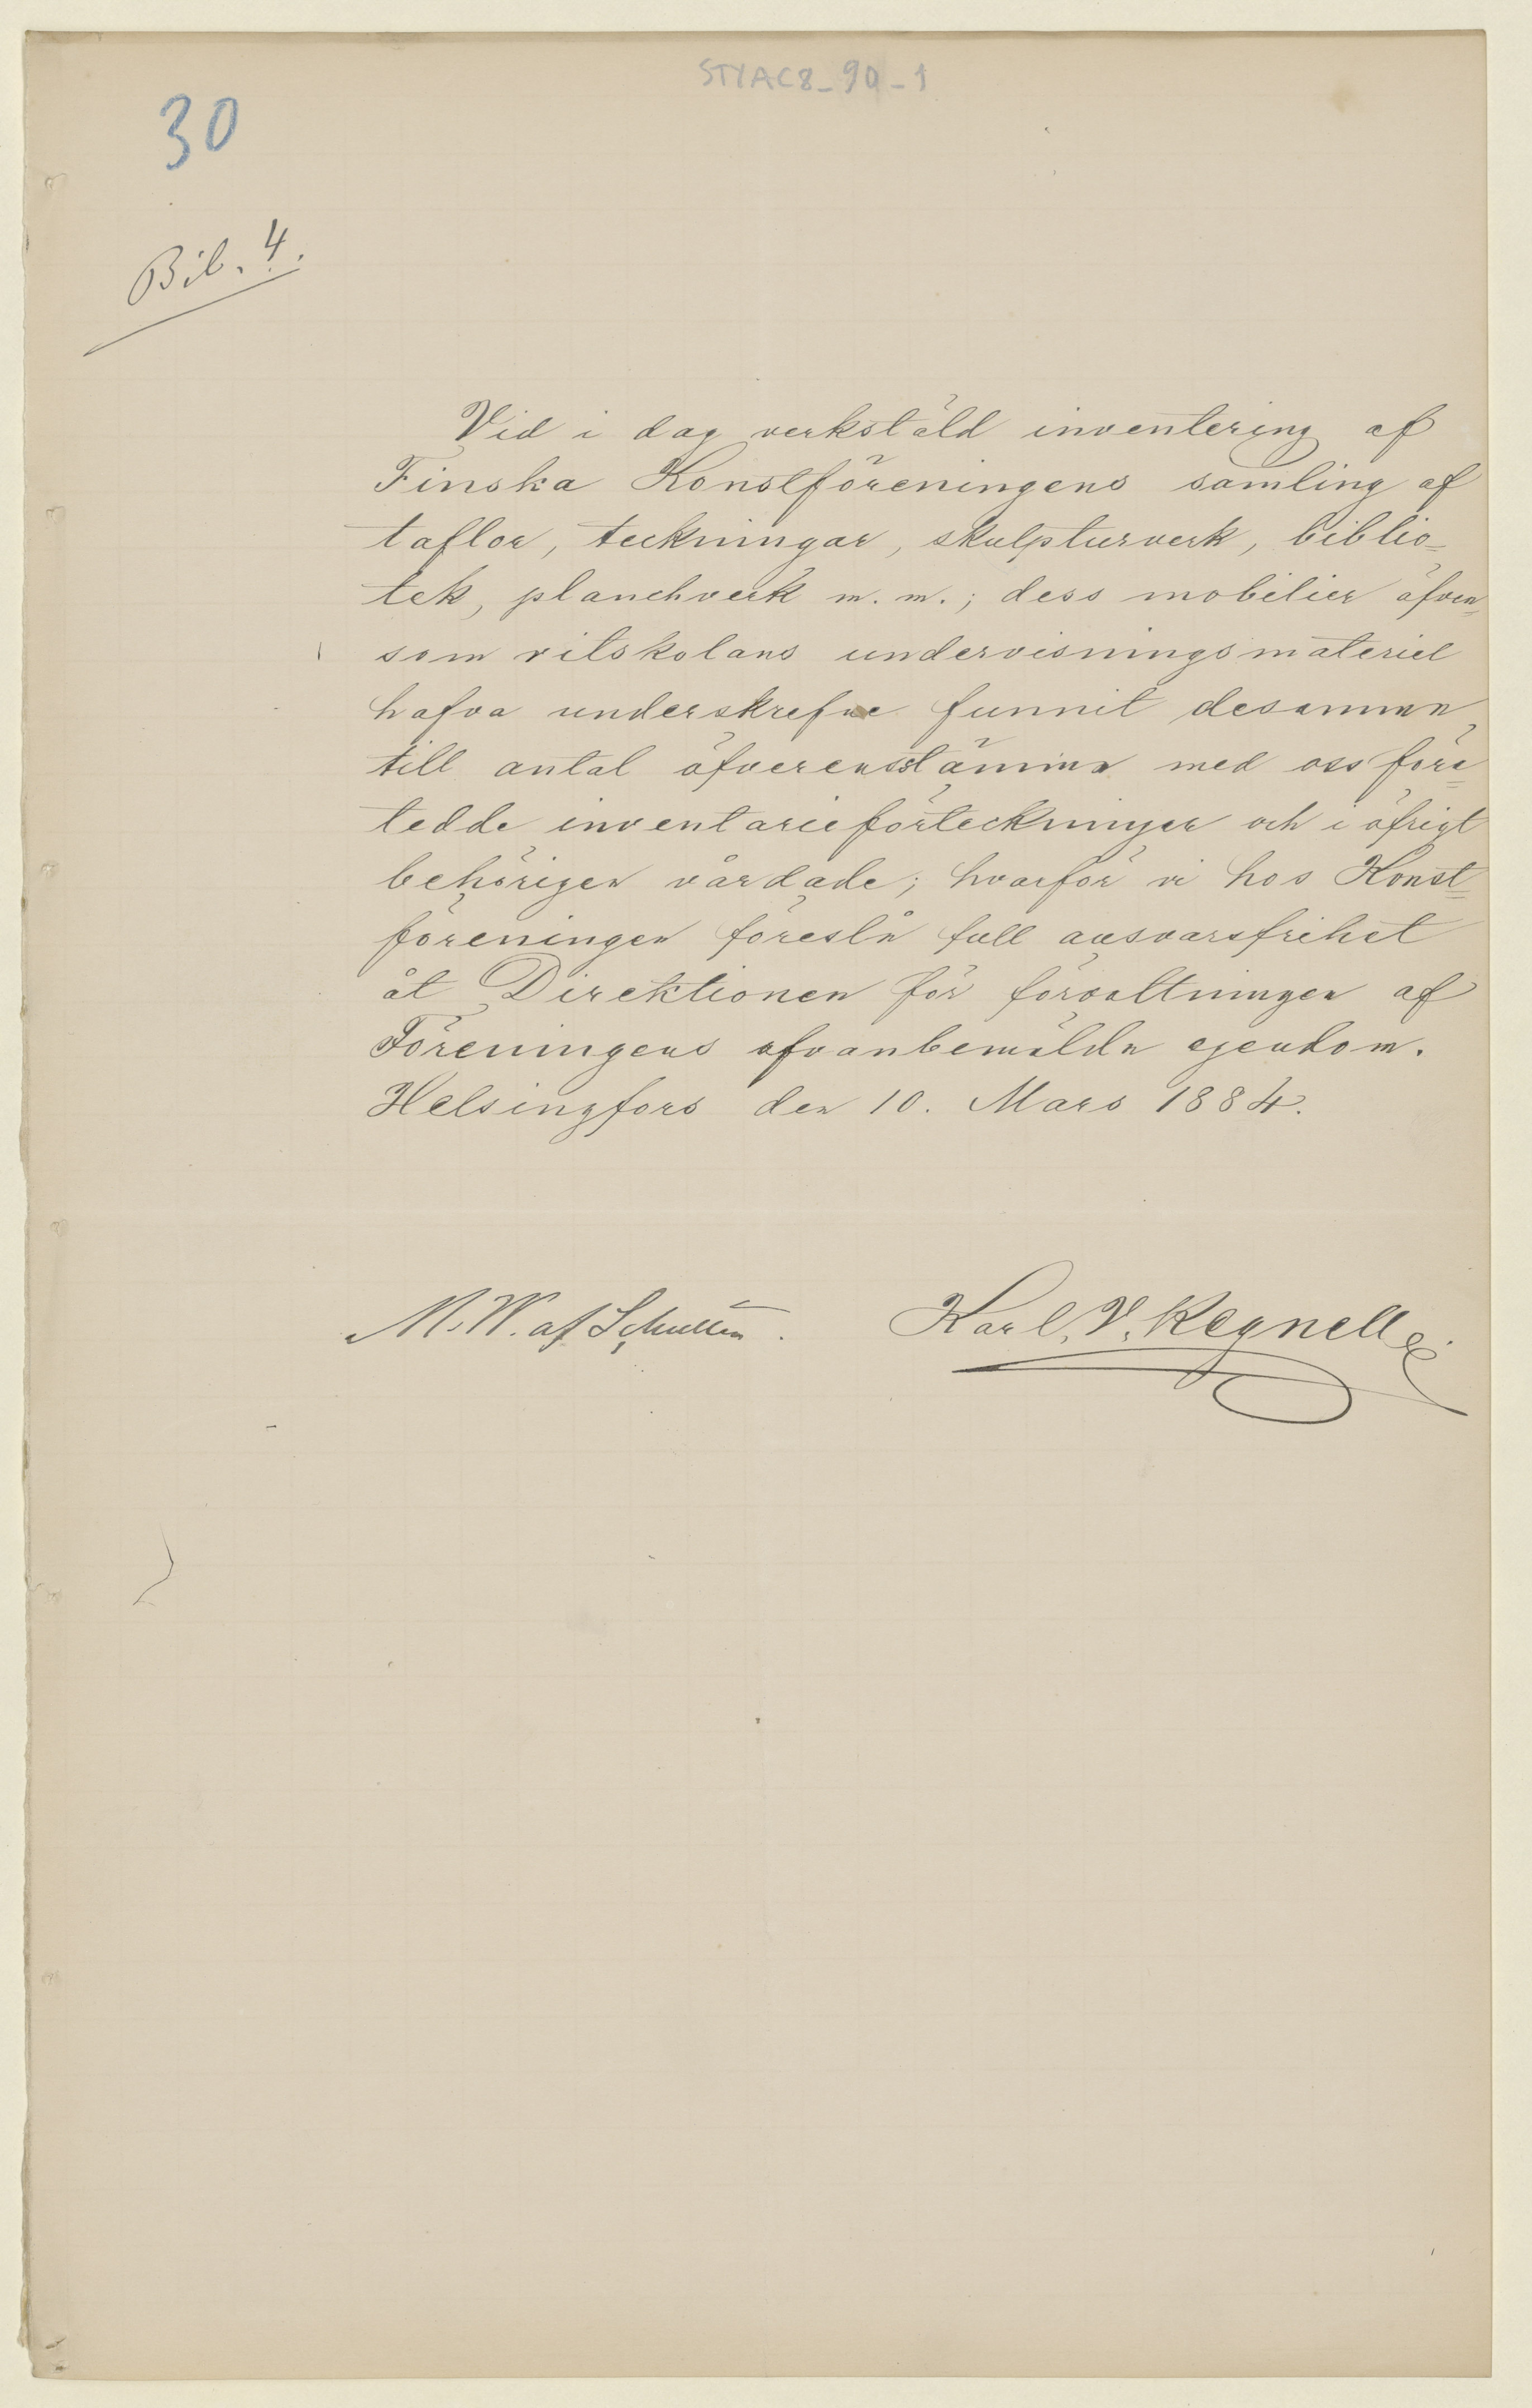 STYAC8_90_1
30
Bil. 4.
Vid i dag verkstäld inventering af
Finska Konstföreningens samling af
taflor, teckningar, skulpturverk, biblio-
tek, planchverk m. m.; dess mobilier äfven
som ritskolans undervisningsmateriel
hafva underskrefne funnit desamma
till antal öfverensstämma med oss före
tedde inventarieförteckningar och i öfrigt
behörigen vårdade; hvarför vi hos Konst=
föreningen föreslå full ansvarsfrihet
åt Direktionen för förvaltningen af
Föreningens ofvanbemälda egendom.
Helsingfors den 10. Mars 1884.
M. W. af Schultén. Karl. V. Regnell